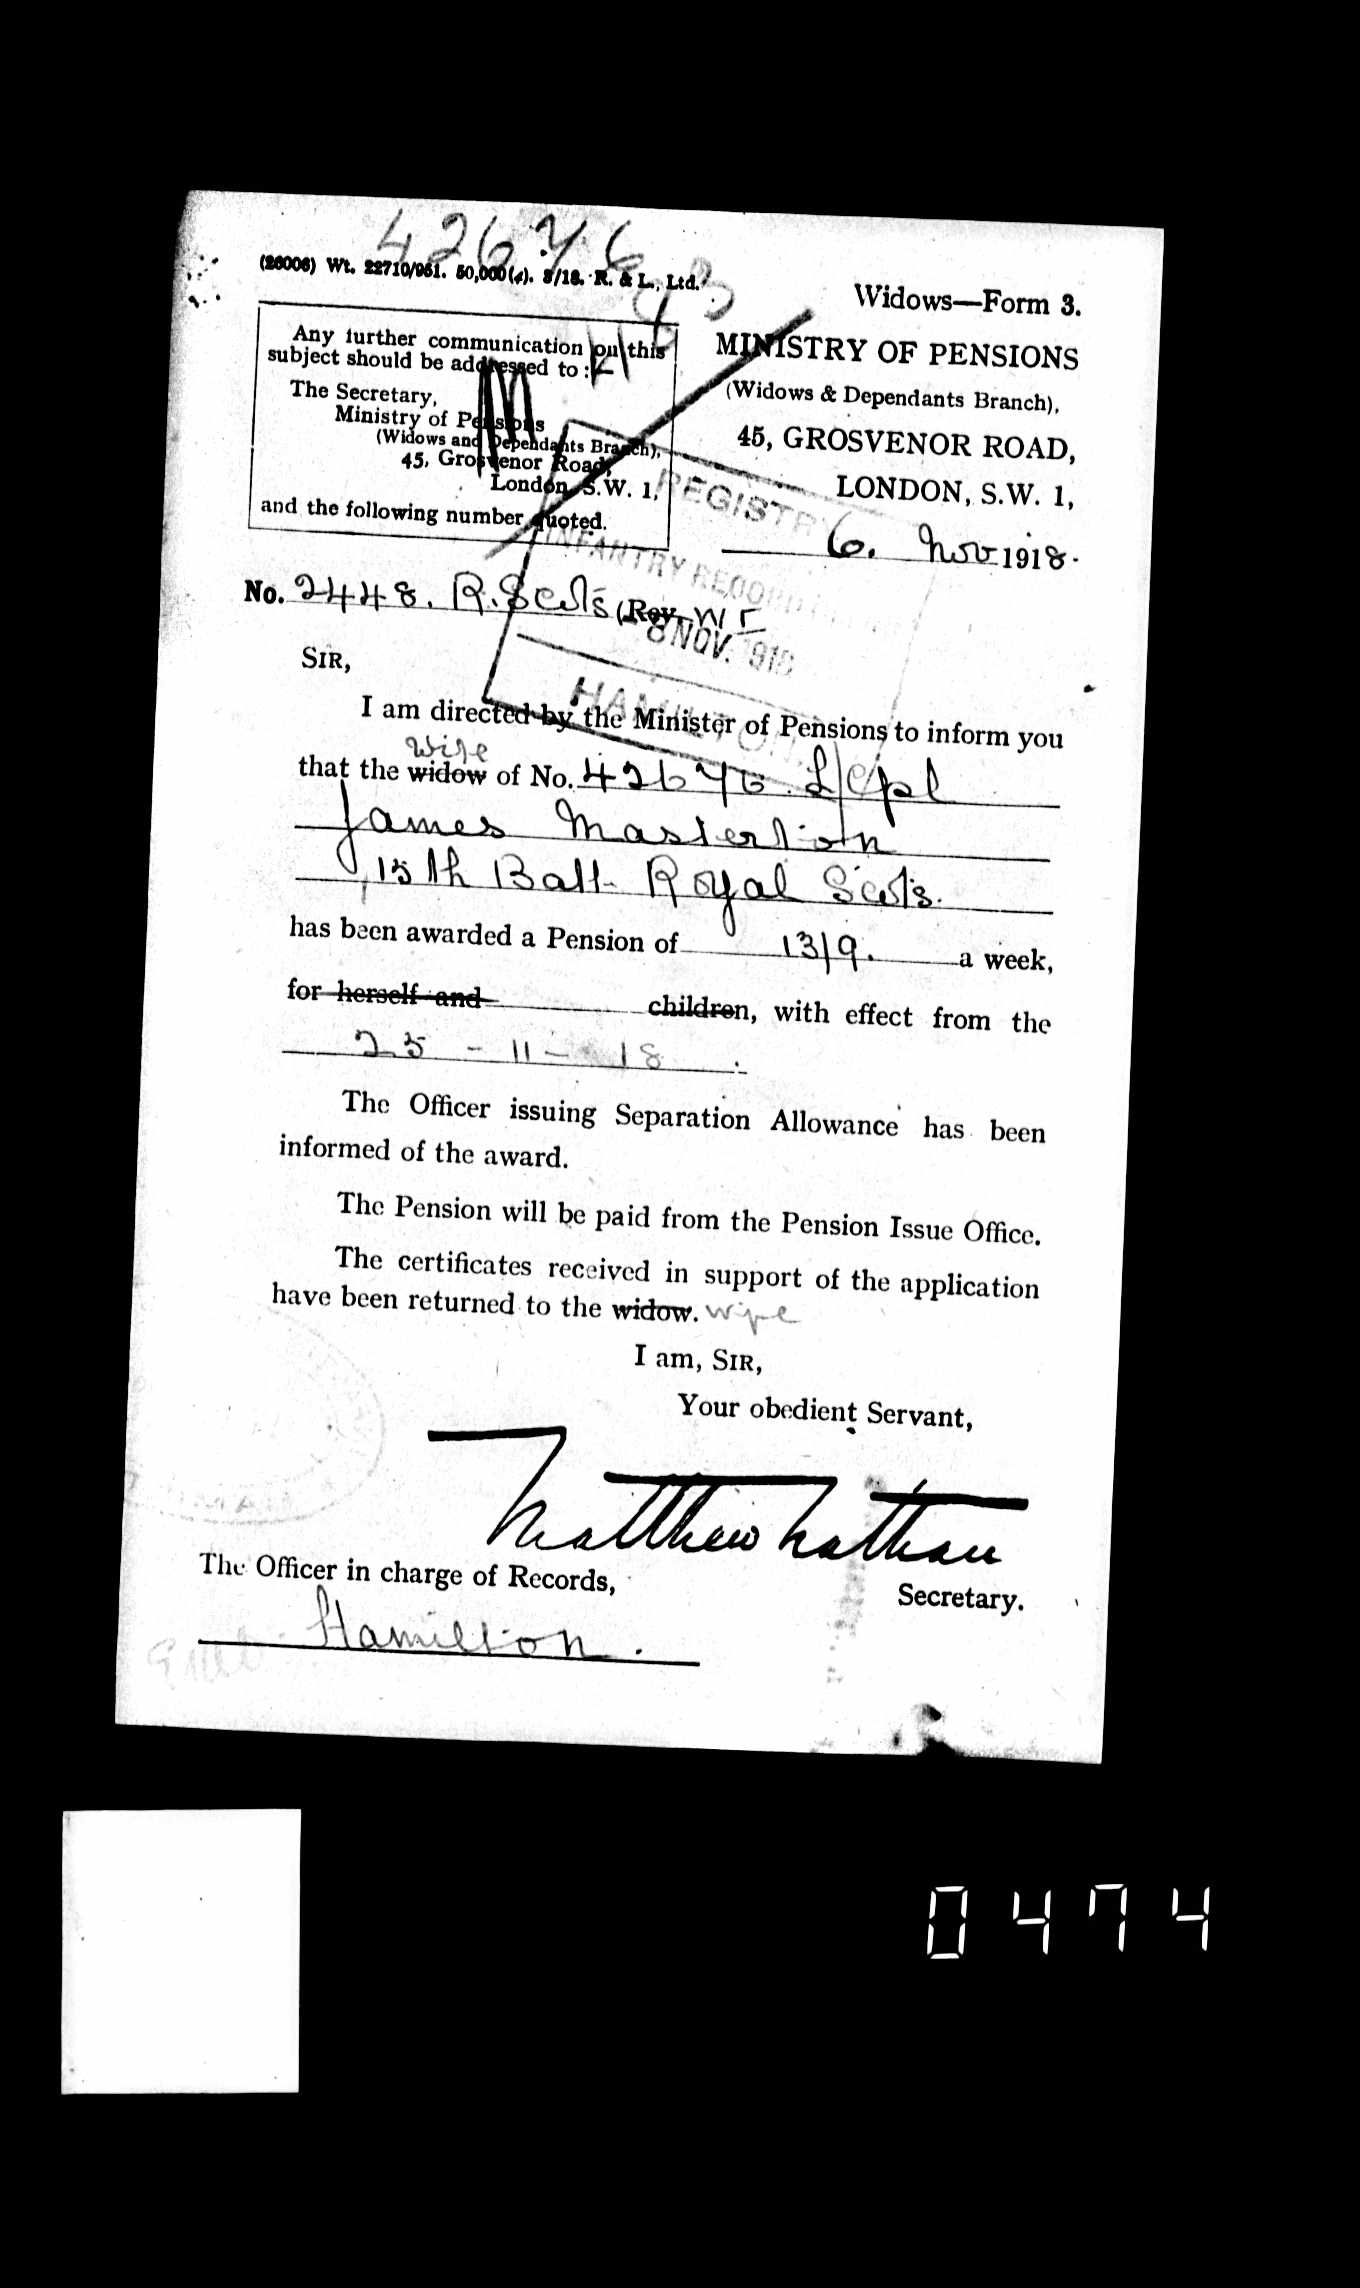 42676
(26006) Wt. 22710/951. 50,000(4). 3/18. R. & L., Ltd.
Widows—Form 3.
Any further communication on this
subject should be addressed to:—
The Secretary,
Ministry of Pensions
(Widows and Dependants Branch),
45, Grosvenor Road,
London, S.W. 1,
and the following number quoted.
MINISTRY OF PENSIONS
(Widows & Dependants Branch),
45, GROSVENOR ROAD,
LONDON, S.W. 1,
6. Nov 1918.
REGISTRY
INFANTRY RECORD
8 NOV. 1918
HAMILTON.
No. 2448. R. Scots (Rev. W
SIR,
I am directed by the Minister of Pensions to inform you
wife
that the widow of No. 42676. L/Cpl
James Masterton
15th Batt. Royal Scots.
has been awarded a Pension of 13/9. a week,
for herself and children, with effect from the
25 - 11 - 18.
The Officer issuing Separation Allowance has been
informed of the award.
The Pension will be paid from the Pension Issue Office.
The certificates received in support of the application
have been returned to the widow. wife
I am, SIR,
Your obedient Servant,
Matthew Nathan
Secretary.
The Officer in charge of Records,
Hamilton.
0474